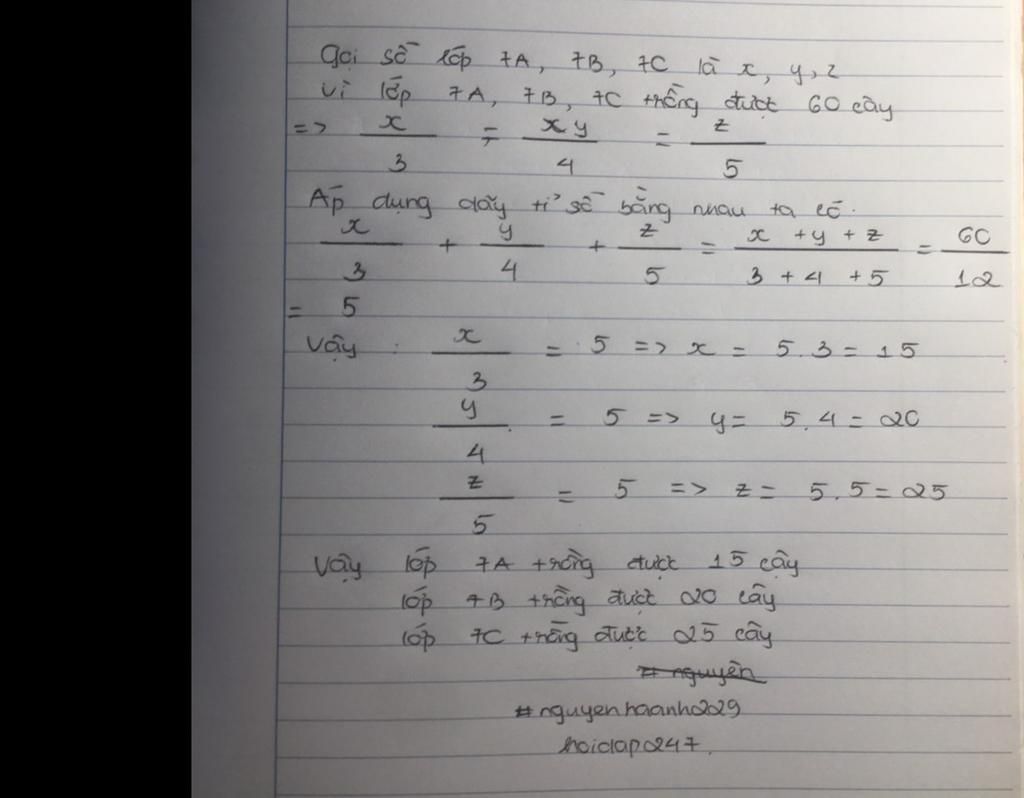 Gọi số lớp 7A, 7B, 7C là x, y, z
Vì lớp 7A, 7B, 7C trồng được 60 cây
=> x/3 = xy/4 = z/5
Áp dụng dãy tỉ số bằng nhau ta có.
x/3 + y/4 + z/5 = x + y + z/3 + 4 + 5 = 60/12
= 5
Vậy : x/3 = 5 => x = 5.3 = 15
y/4 = 5 => y = 5.4 = 20
z/5 = 5 => z = 5.5 = 25
Vậy lớp 7A trồng được 15 cây
lớp 7B trồng được 20 cây
lớp 7C trồng được 25 cây
# nguyên
#nguyenhaanh2229
hoidap247.